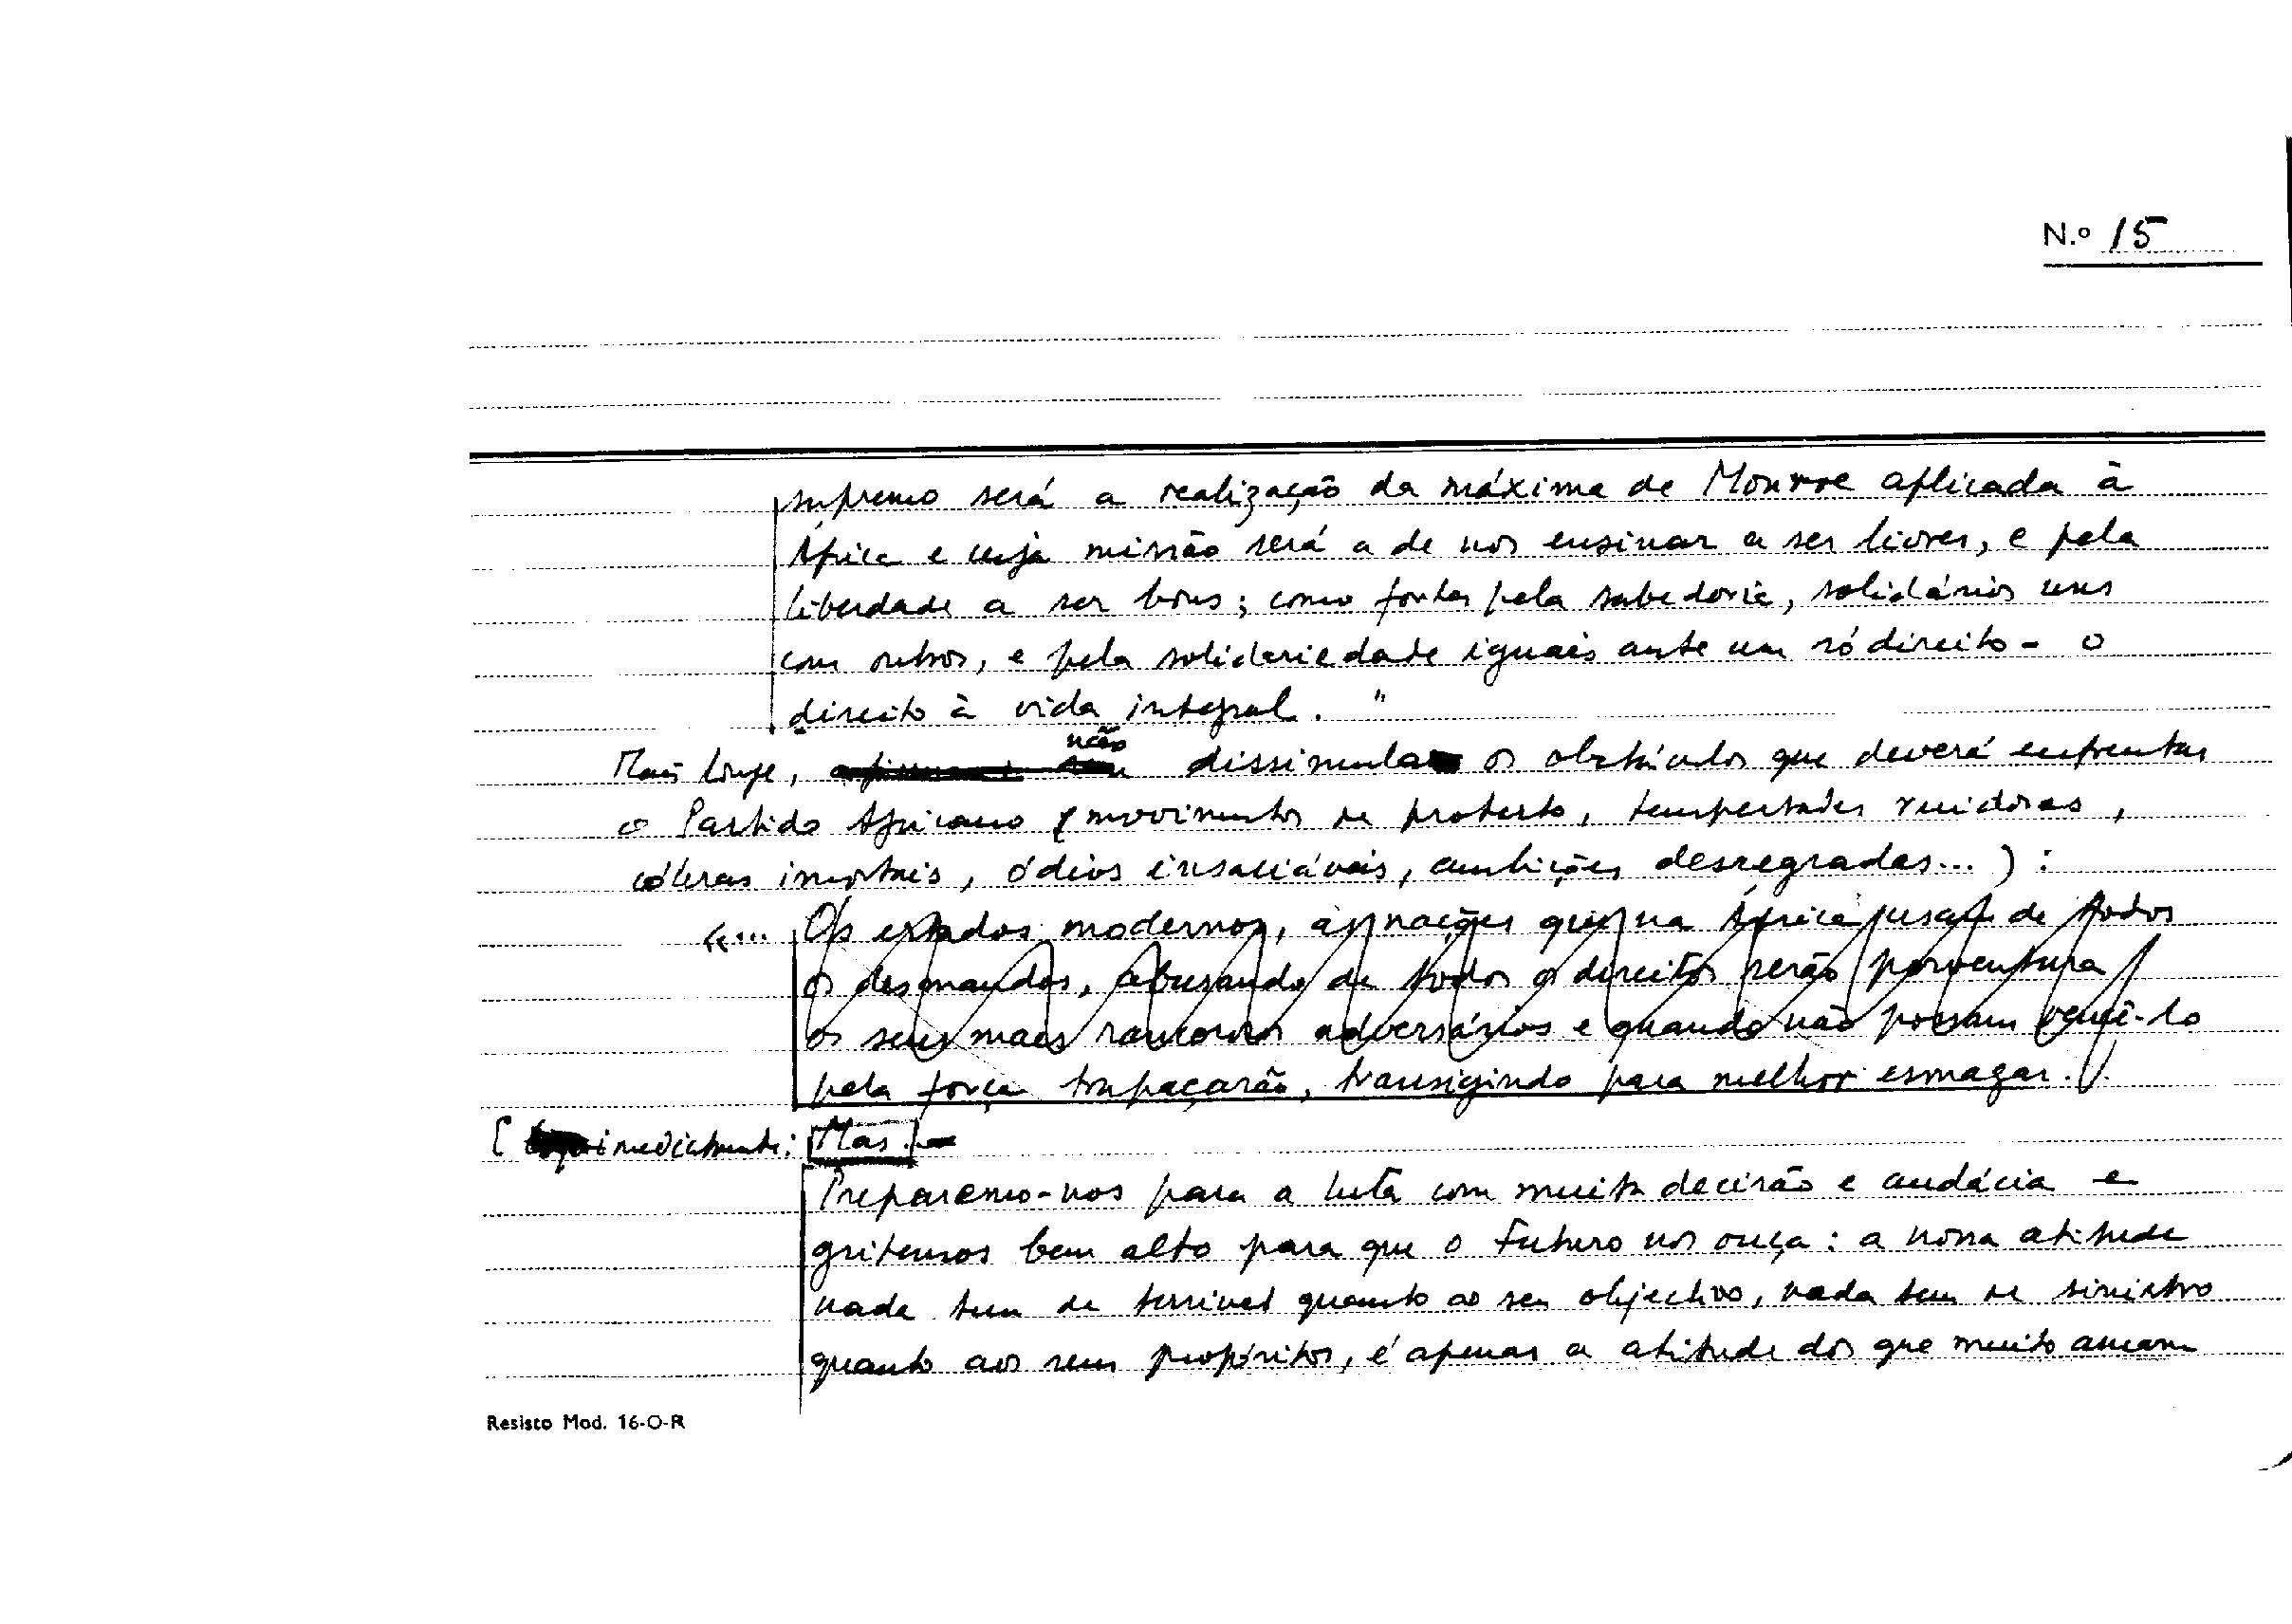 N.º 15
supremo será a realização da máxima de Monroe aplicada à
África e cuja missão será a de nos ensinar a ser livres, e pela
liberdade a ser bons; como fortes pela sabedoria, solidários uns
com outros, e pela solidariedade iguais ante um só direito - o
direito à vida integral. "
não
Mais longe, dissimula os obstáculos que deverá enfrentar
o Partido Africano (movimentos de protesto, tempestades ruidosas,
cóleras imortais, ódios insaciáveis, ambições desregradas...):
«... Os estados modernos, as nações que na África usam de todos
os desmandos, abusando de todos os direitos serão porventura
os seus mais rancorosos adversários e quando não possam vencê-lo
pela força trapaçarão, transigindo para melhor esmagar.
[ imediatamente: Mas.-
Preparemo-nos para a luta com muita decisão e audácia e
gritemos bem alto para que o Futuro nos ouça: a nossa atitude
nada tem de terrível quanto ao seu objectivo, nada tem de sinistro
quanto aos seus propósitos, é apenas a atitude dos que muito amam
Resisto Mod. 16-O-R